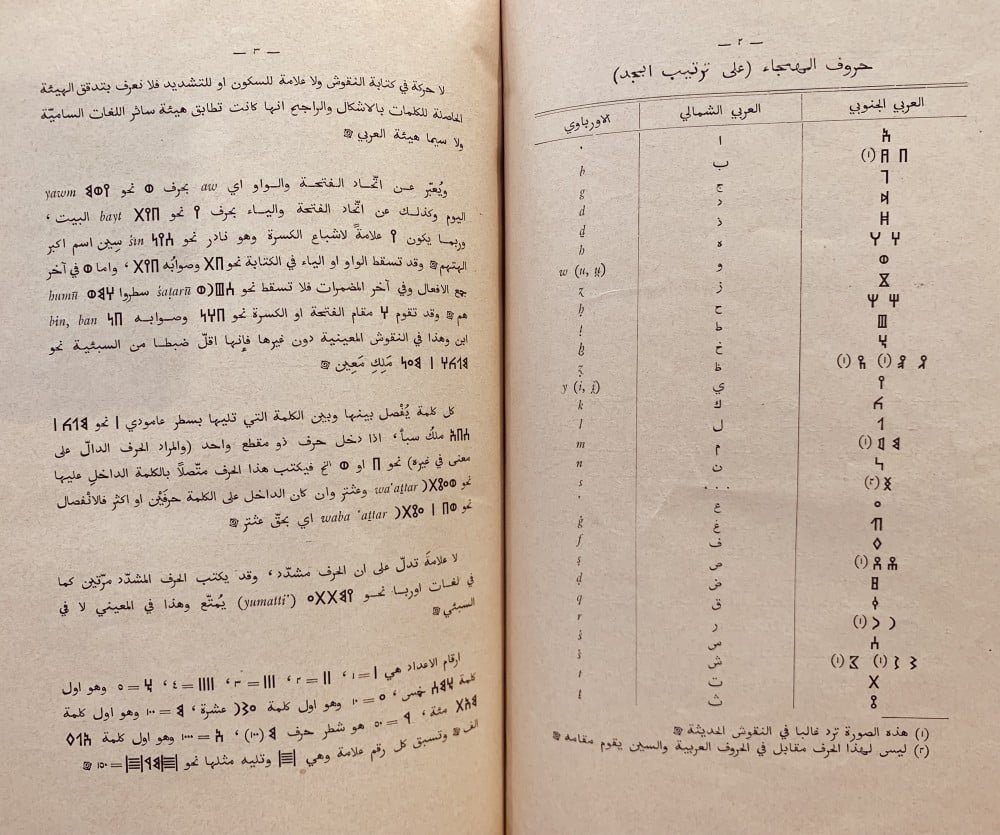 — ٢ —
حروف الهجاء (على ترتيب ابجد)
العربي الجنوبي العربي الشمالي الاورباوي
𐩱 ا ʾ
𐩨 𐩨 (١) ب b
𐩴 ج g
𐩵 د d
𐩹 ذ ḏ
𐩠 𐩠 ه h
𐩥 و w (u, u̯)
𐩸 ز z
𐩢 𐩢 ح ḥ
𐩷 ط ṭ
𐩭 خ ḫ
𐩼 𐩼 (١) 𐩼 (١) ظ ẓ
𐩺 ي y (i, i̯)
𐩫 ك k
𐩡 ل l
𐩣 𐩣 (١) م m
𐩬 ن n
𐩯 (٢) . . . s
𐩲 ع ʿ
𐩶 غ ġ
𐩰 ف f
𐩮 𐩮 (١) ص ṣ
𐩳 ض ḍ
𐩤 ق q
𐩧 𐩧 (١) ر r
𐩪 س ś
𐩦 𐩦 (١) 𐩦 (١) ش š
𐩩 ت t
𐩻 ث ṯ
(١) هذه الصورة ترد غالبا في النقوش الحديثة
(٢) ليس لهذا الحرف مقابل في الحروف العربية والسين يقوم مقامه
— ٣ —
لا حركة في كتابة النقوش ولا علامة للسكون او للتشديد فلا نعرف بتدقق الهيئة
الحاصلة للكلمات بالاشكال والراجح انها كانت تطابق هيئة سائر اللغات الساميّة
ولا سيما هيئة العربي
ويُعبّر عن اتّحاد الفتحة والواو اي aw بحرف 𐩥 نحو 𐩺𐩥𐩣 yawm
اليوم وكذلك عن اتّحاد الفتحة والياء بحرف 𐩺 نحو 𐩨𐩺𐩩 bayt البيت،
وربما يكون 𐩺 علامةً لاشباع الكسرة وهو نادر نحو 𐩪𐩺𐩬 śin سِين اسم اكبر
الهتهم وقد تسقط الواو او الياء في الكتابة نحو 𐩨𐩩 وصوابُه 𐩨𐩺𐩩، واما 𐩥 في آخر
جمع الافعال وفي آخر المضمرات فلا تسقط نحو 𐩪𐩷𐩧𐩥 śaṭarū سطروا 𐩠𐩣𐩥 humū
هم وقد تقوم 𐩠 مقام الفتحة او الكسرة نحو 𐩨𐩠𐩬 وصوابه 𐩨𐩬 bin, ban
ابن وهذا في النقوش المعينية دون غيرها فإنها اقلّ ضبطا من السبئية نحو
𐩣𐩡𐩫𐩠 | 𐩣𐩲𐩬 مَلِكِ مَعِين
كل كلمة يُفْصل بينها وبين الكلمة التي تليها بسطر عامودي | نحو 𐩣𐩡𐩫 |
𐩪𐩨𐩱 ملكُ سبأ، اذا دخل حرف ذو مقطع واحد (والمراد الحرف الدالّ على
معنى في غيره) نحو 𐩨 او 𐩥 الخ فيكتب هذا الحرف متّصلًا بالكلمة الداخلِ عليها
نحو 𐩥𐩲𐩻𐩩𐩧 waʿaṯtar وعثتر وان كان الداخل على الكلمة حرفَيْن او اكثر فالانْفصال
نحو 𐩥𐩨 | 𐩲𐩻𐩩𐩧 waba ʿaṯtar اي بحقّ عثتر
لا علامةَ تدلّ على ان الحرف مشدّد، وقد يكتب الحرف المشدّد مرّتين كما
في لغات اوربا نحو 𐩺𐩣𐩩𐩩𐩲 (yumattiʿ) يُمتّع وهذا في المعيني لا في
السبئي
ارقام الاعداد هي | = ١، || = ٢، ||| = ٣، |||| = ٤، 𐩭 = ٥ وهو اول
كلمة 𐩭𐩣𐩪 خمس، 𐩲 = ١٠ وهو اول كلمة 𐩲𐩦𐩧 عشرة، 𐩣 = ١٠٠ وهو اول كلمة
𐩣𐩱𐩩 مئة، 𐩾 = ٥٠ هو شطر حرف 𐩣 (١٠٠)، 𐩱 = ١٠٠٠ وهو اول كلمة 𐩱𐩡𐩰
الف وتسبق كل رقم علامة وهي 𐩿 وتليه مثلها نحو 𐩿𐩣𐩾𐩿 = ١٥٠